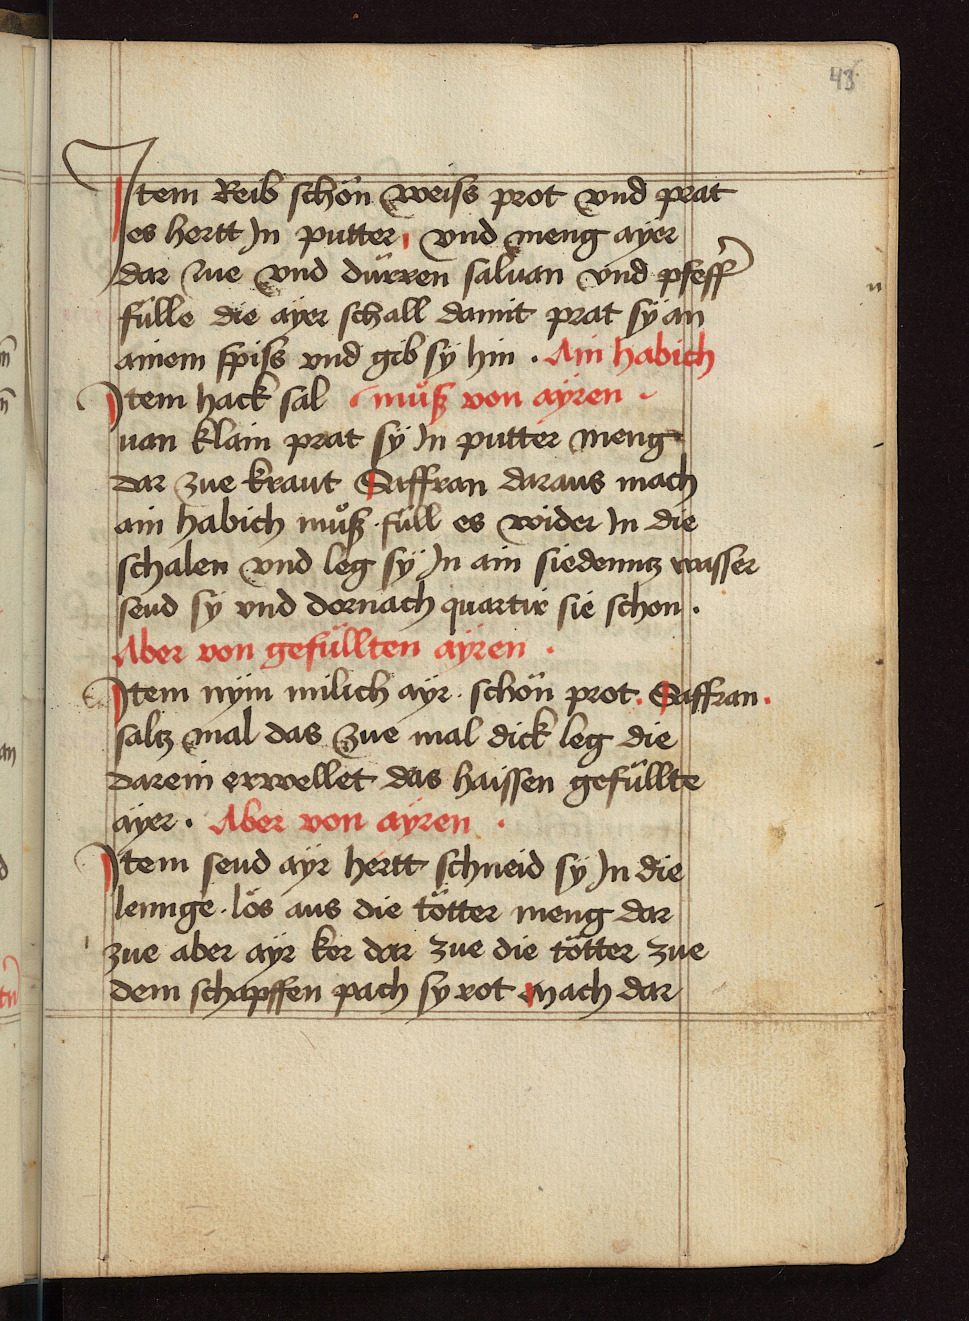 43
Item Reib schön weiss prot vnd prat
es hertt Jn putter, vnd meng ayer
dar zue vnd dürren saluan vnd pfeff
fülle die ayer schall damit prat sÿ an
ainem spiss vnd gib sÿ hin . Ain habich
Item hack sal muͦß von aÿren .
uan klain prat sÿ Jn putter meng
dar zue kraut Saffran daraus mach
ain habich muͦß . füll es wider Jn die
schalen vnd leg sÿ Jn ain siedenntz wasser
seud sÿ vnd dornach quartir sie schon .
Aber von gefüllten aÿren .
Item nÿm milich aÿr . schön prot . Saffran .
saltz mal das zue mal dick leg die
darein erwellet das haissen gefüllte
aÿer . Aber von aÿren .
Item seud aÿr hertt schneid sÿ Jn die
lennge . lös aus die tötter meng dar
zue aber aÿr ker dar zue die tötter zue
dem schapffen pach sÿ rot mach dar